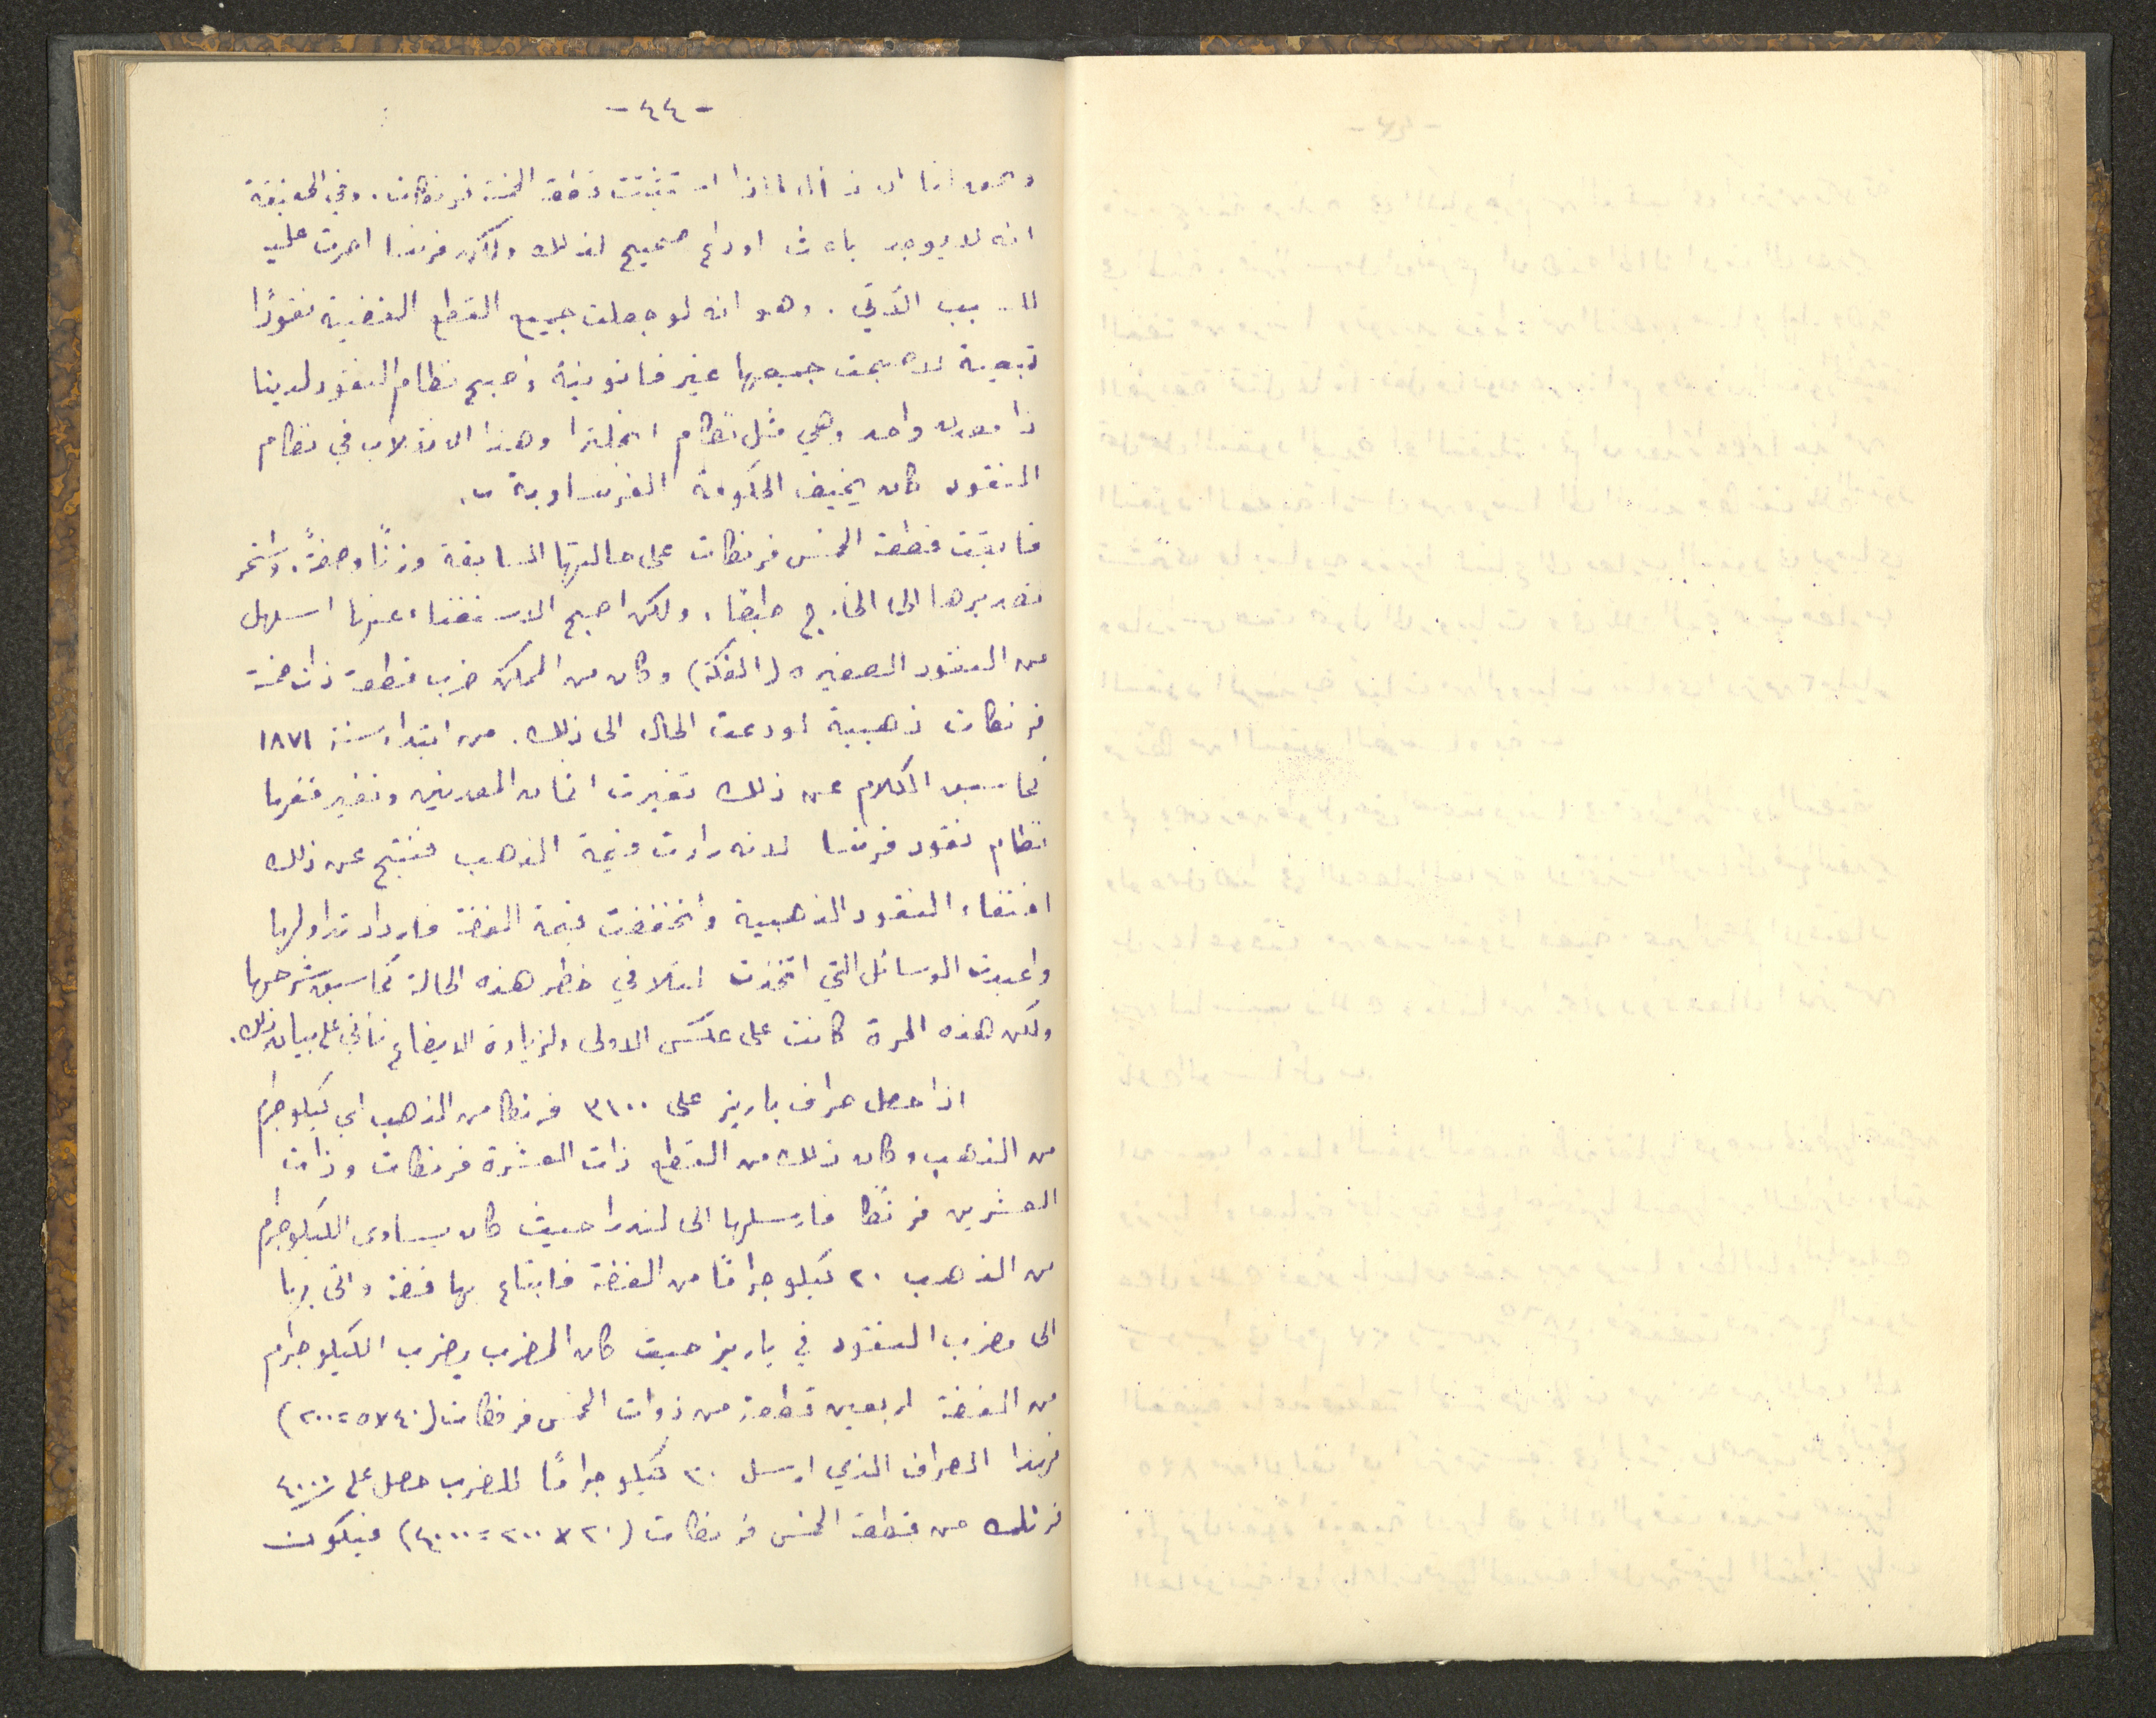 - ٤٤ -
لماذا استثنت قطعة الخمسة فرنكات. وفي الحقيقة
انه لا يوجد باعث او داع صحيح لذلك ولكن فرنسا اجرت عليه
للسبب الآتي. وهو انه لو جعلت جميع القطع الفضية نقودًا
تبعية لاصبحت جميعها غير قانونية واصبح نظام النقود لدينا
ذا معدن واحد وهي مثل نظام انجلترا وهذا الانقلاب في نظام
النقود كان يخيف الحكومة الفرنساوية.
فابقت قطعة الخمس فرنكات على حالتها السابقة وزنًا وصفةً. واستمر
تصديرها الى الخارج طبقا. ولكن اصبح الاستغناء عنها اسهل
من النقود الصغيرة (الفكة) وكان من الممكن ضرب قطعة ذات خمسة
فرنكات ذهبية لو دعت الحال الى ذلك. من ابتداء سنة ١٨٧١
كما سبق الكلام عن ذلك تغيرت اثمان المعدنين وتغير
نظام نقود فرنسا لانه زادت قيمة الذهب فنتج عن ذلك
اختفاء النقود الذهبية وانخفضت قيمة الفضة فازداد تداولها
واعيدت الوسائل التي اتخذت لتلافي خطر هذه الحالة كما سبق شرحها
ولكن هذه المرة كانت على عكس الاولى ولزيادة الايضاح نأتي على بيان ذلك.
اذا حصل صراف باريز على ٣١٠٠ فرنكا من الذهب اي كيلو جرام
من الذهب وكان ذلك من القطع ذات العشرة فرنكات وذات
العشرين فرنكًا فارسلها الى لندرا حيث كان يساوى الكيلو جرام
من الذهب ٢٠ كيلو جرامًا من الفضة فابتاع بها فضة واتى بها
الى مضرب النقود في باريز حيث كان المضرب يضرب الكيلو جرام
من الفضة اربعين قطعة من ذوات الخمس فرنكات (٤٠×٥=٢٠٠)
فهذا الصراف الذي ارسل ٢٠ كيلو جرامًا للمضرب حصل على ٤٠٠٠
فرنك من قطعة الخمس فرنكات (٢٠×٢٠٠=٤٠٠٠) فيكون